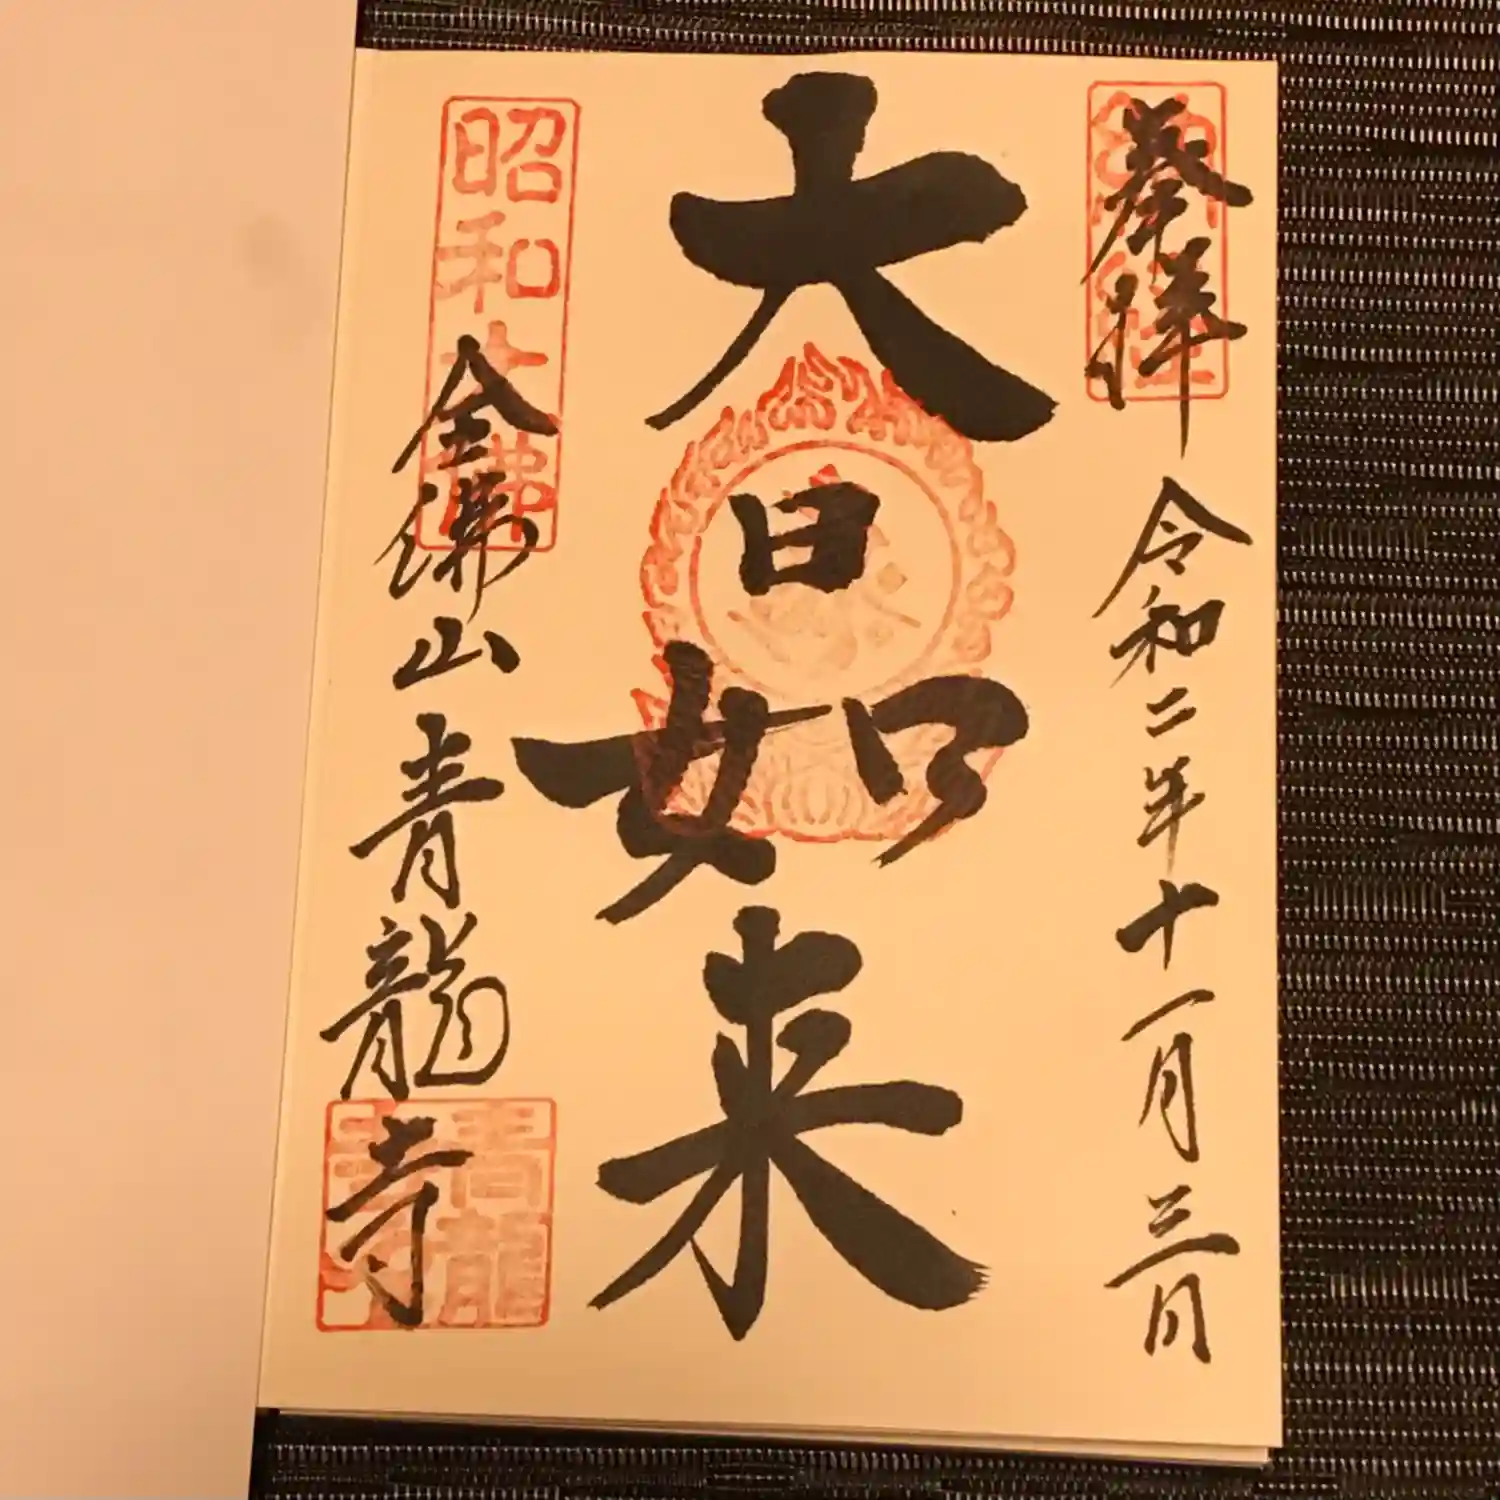 奉拝
令和二年十一月三日
大日如来
昭和大佛
全佛山青龍寺
青龍寺